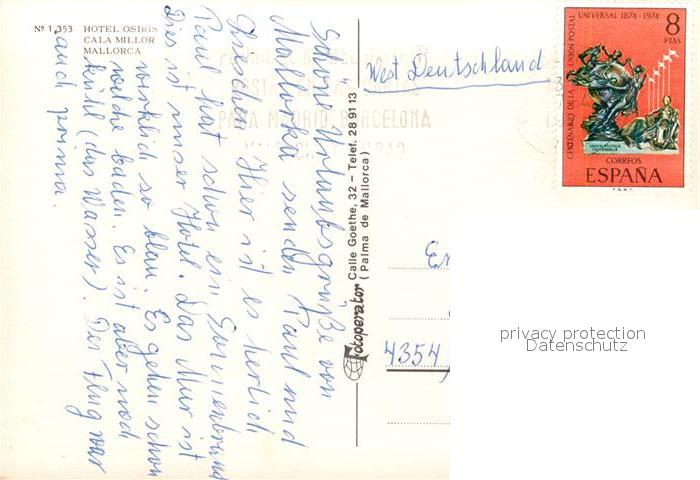 Nº 1.353 HOTEL OSIRIS
CALA MILLOR
MALLORCA
Schöne Urlaubsgrüße von
Mallorka senden Paul und
Hier ist es herlich
Paul hat schon ein
Dies ist unser Hotel. Das Meer ist
wirklich so blau. Es gehen schon
welche baden. Es ist aber noch
kühl (das Wasser). Der Flug war
auch prima.
Fotoperator Calle Goethe, 32 - Telef. 28 91 13
(Palma de Mallorca)
PARA MADRID, BARCELONA
West Deutschland
4354
CENTENARIO DE LA UNION POSTAL UNIVERSAL 1874-1974
8
PTAS
CORREOS
ESPAÑA
F.N.M.T.
privacy protection
Datenschutz